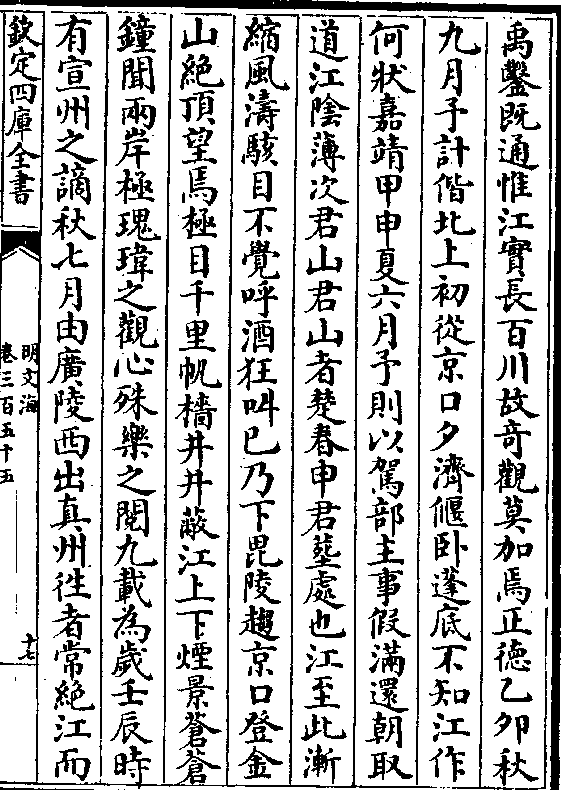 禹鑿既通惟江實長百川故奇觀莫加焉正德乙卯秋
九月予計偕北上初從京口夕濟偃卧蓬底不知江作
何狀嘉靖甲申夏六月予則以駕部主事假滿還朝取
道江陰薄次君山君山者楚春申君塟處也江至此漸
縮風濤駭目不覺呼酒狂叫已乃下毘陵趨京口登金
山絶頂望焉極目千里帆檣井井蔽江上下煙景蒼蒼
鐘聞兩岸極瑰瑋之觀心殊樂之閱九載為歲壬辰時
有宣州之謫秋七月由廣陵西出真州徃者常絶江而
欽定四庫全書
明文海
卷三百五十五
十七